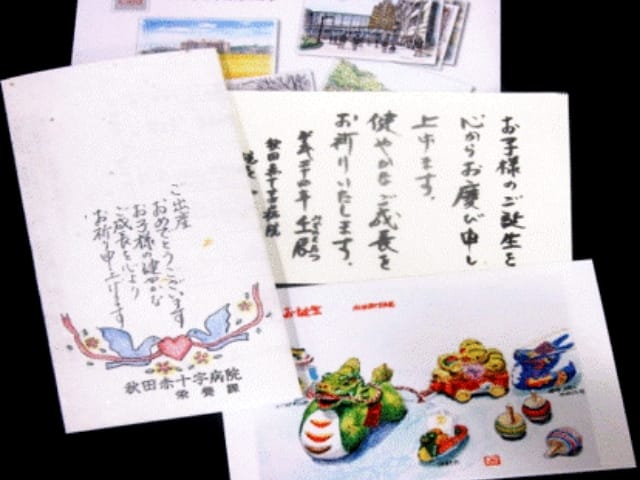 お子様のご誕生を
心からお慶び申し
上げます。
健やかなご成長を
お祈りいたします。
平成二十四年 壬辰
みずのえたつ
秋田赤十字病院
ご出産
おめでとうございます
お子様の健やかな
ご成長を心より
お祈り申し上げます
秋田赤十字病院
栄養課
お誕生